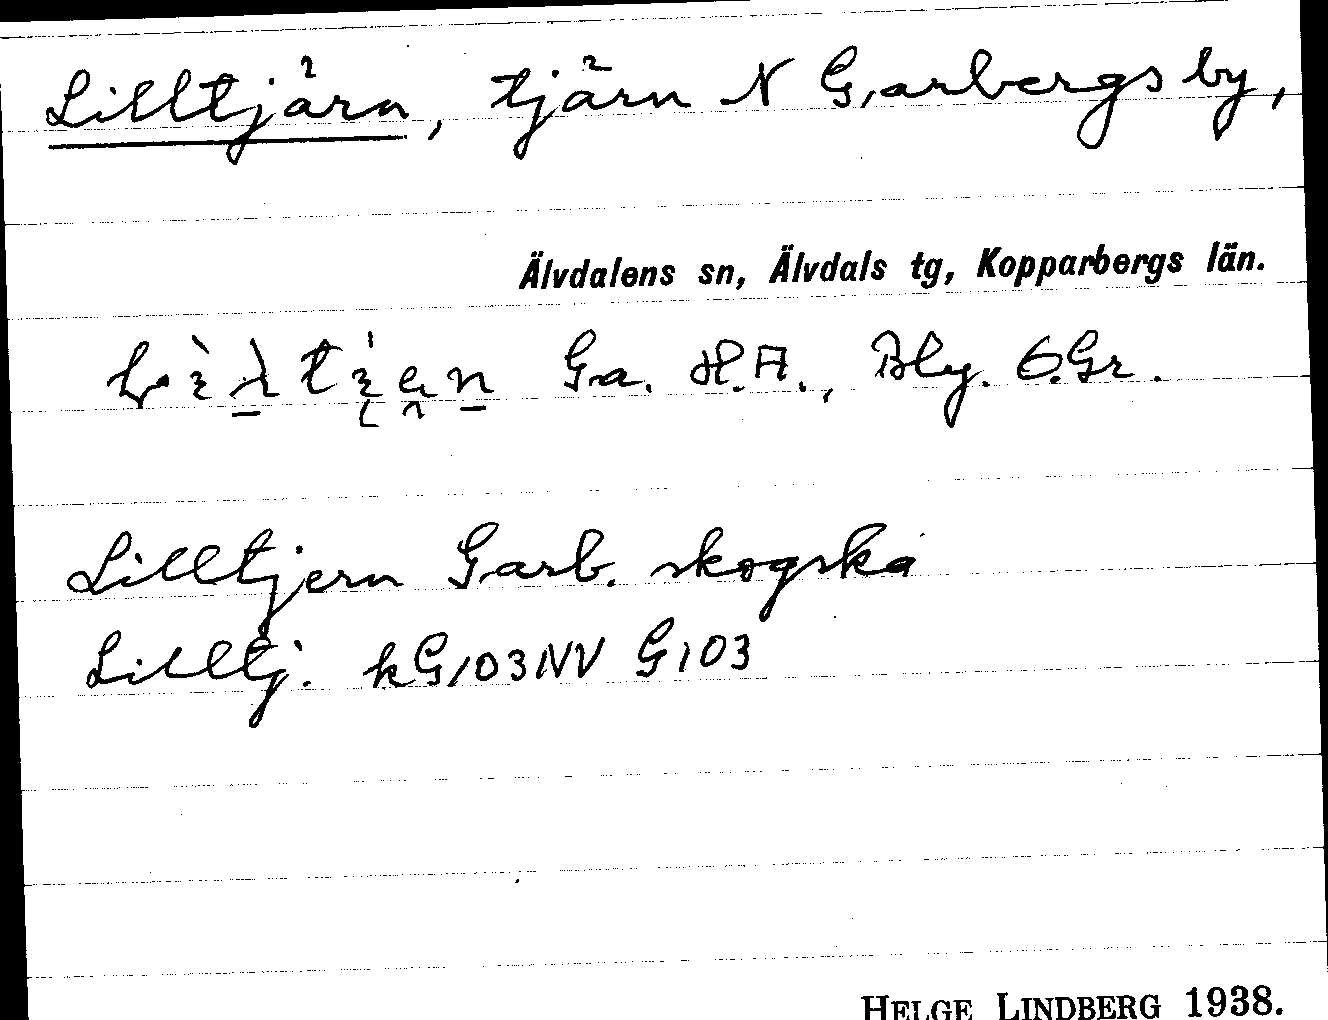 Lilltjärn, tjärn N Garbergs by,
Älvdalens sn, Älvdals tg, Kopparbergs län.
Ga. H.A., Bly. E.Gr.
Lilltjern Garb. skogska
Lilltj. kG103NV G103
HELGE LINDBERG 1938.